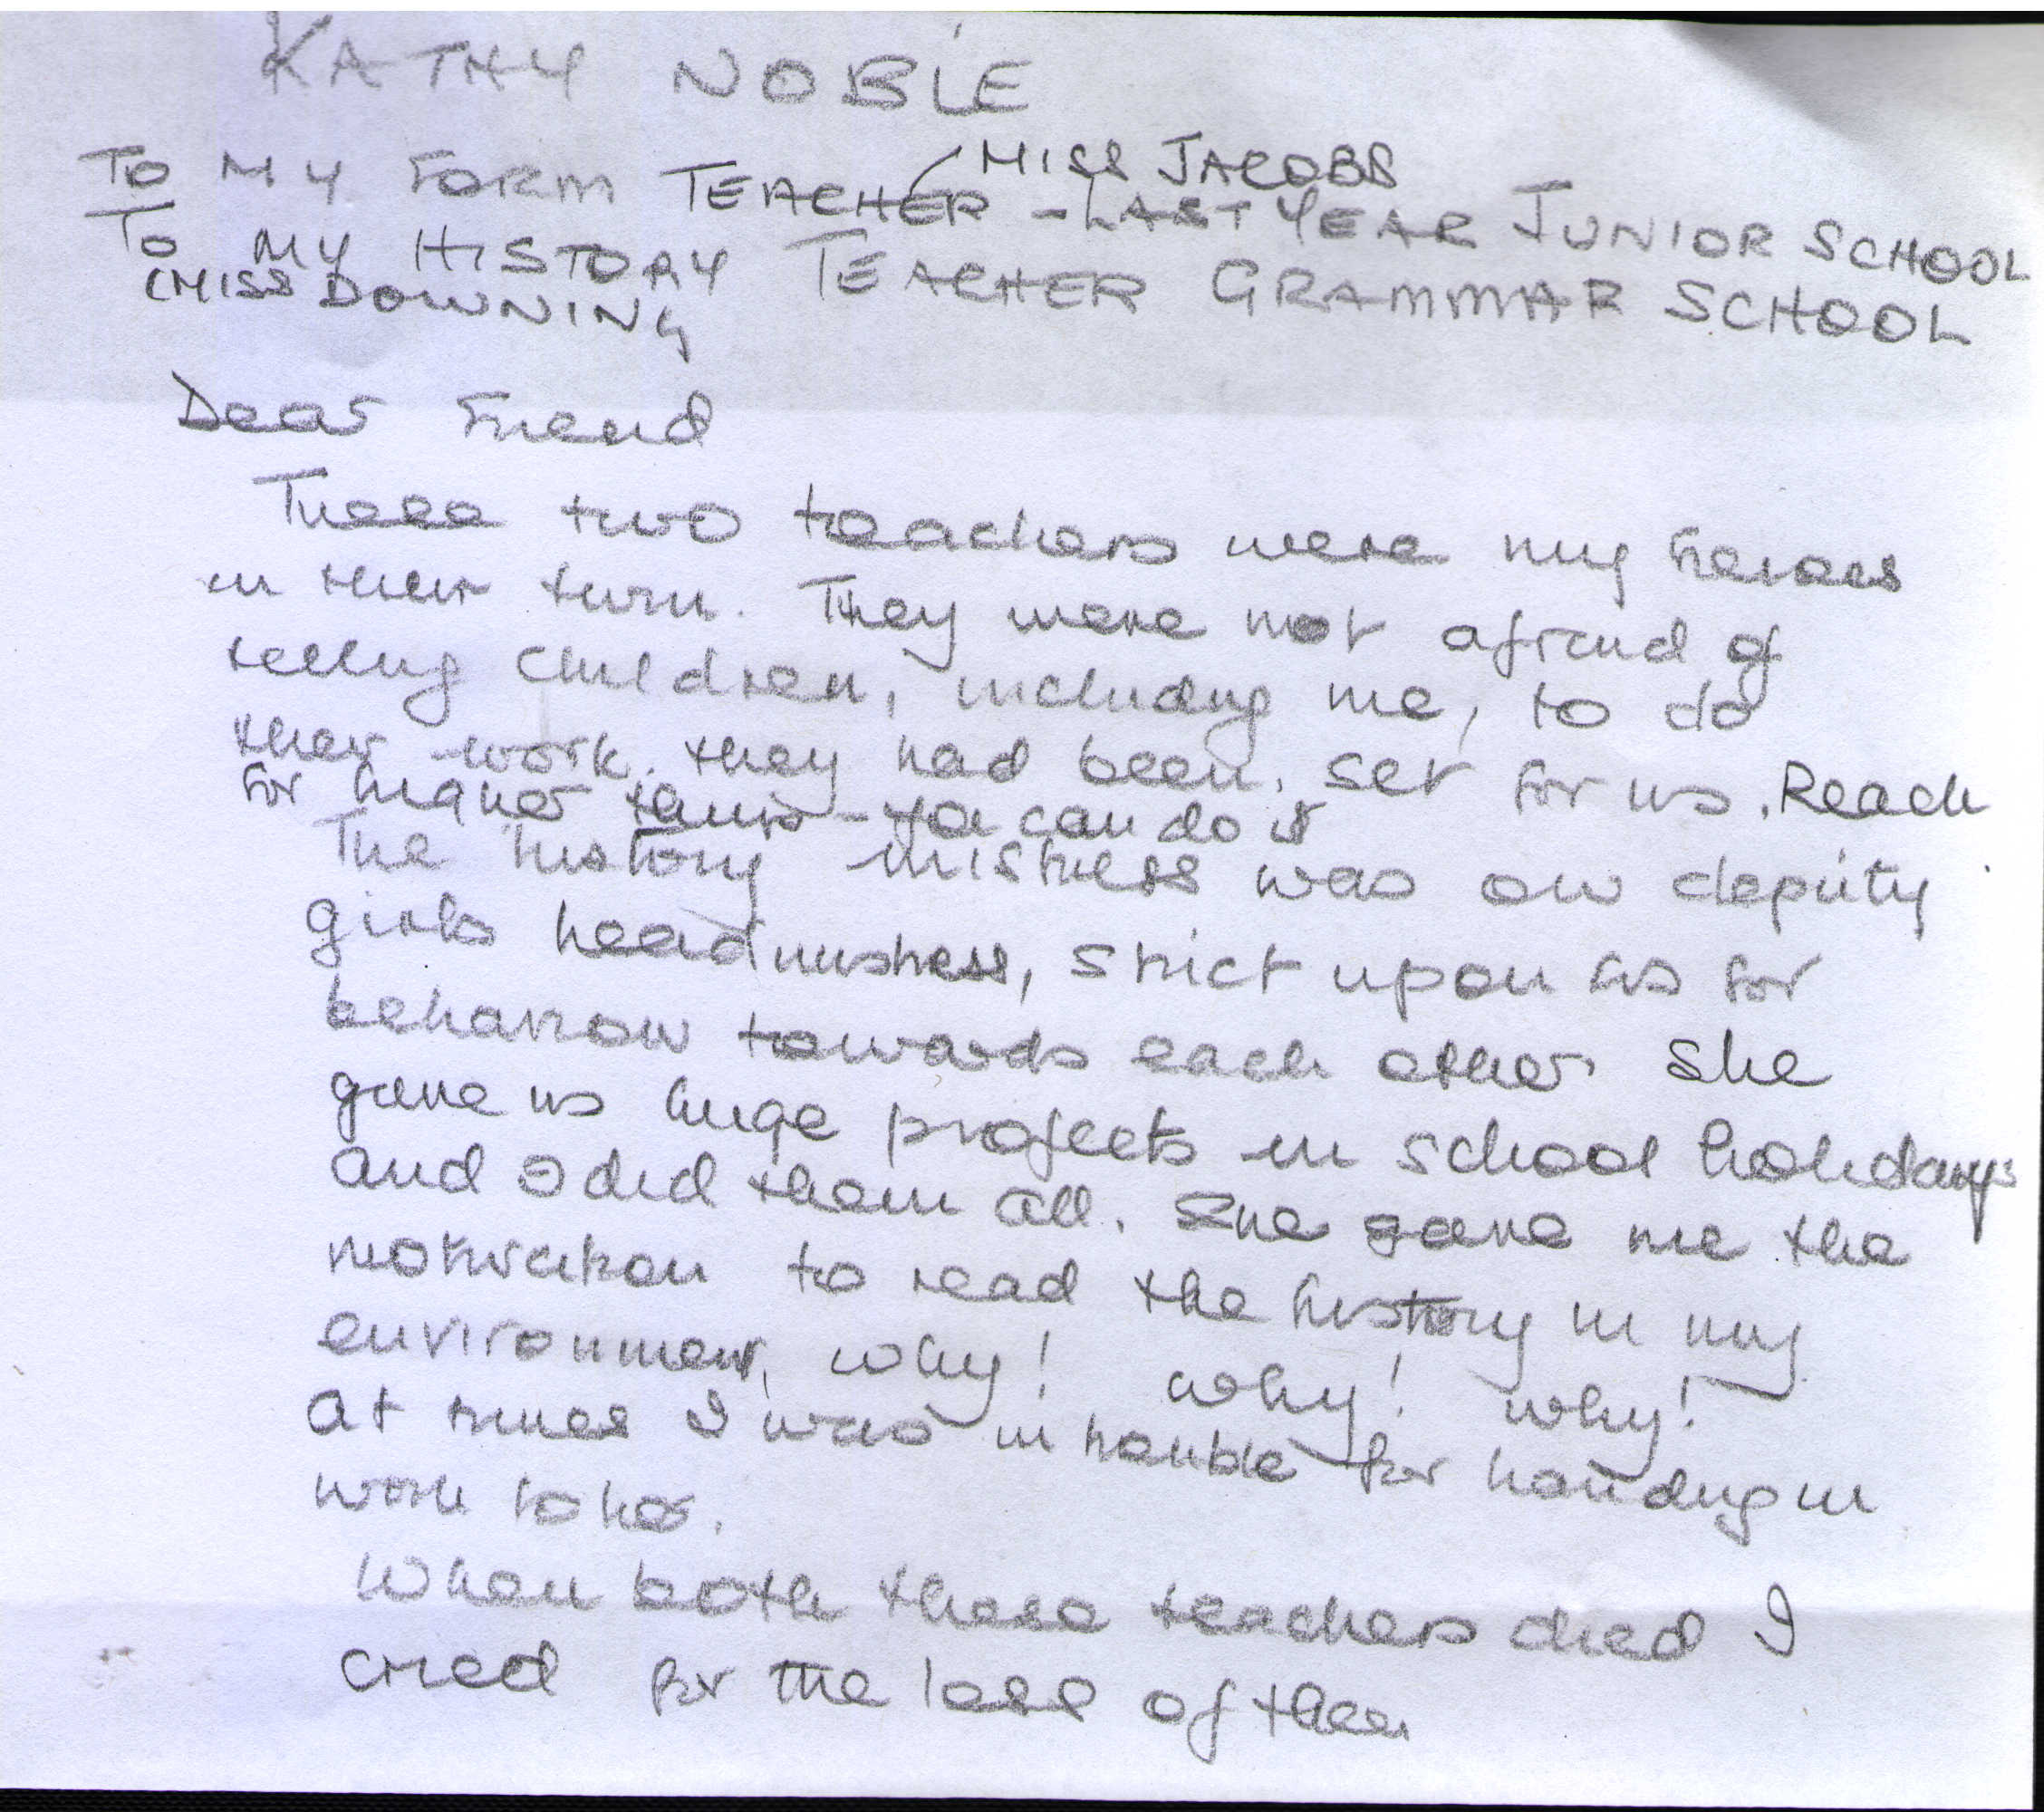 KATHY NOBLE
(MISS JACOBS
TO MY FORM TEACHER - LAST YEAR JUNIOR SCHOOL
TO MY HISTORY TEACHER GRAMMAR SCHOOL
(MISS DOWNING
Dear Friend
These two teachers were my heroes
in their turn. They were not afraid of
telling children, including me, to do
their work they had been set for us. Reach
for higher - you can do it
The history mistress was our deputy
girls headmistress, strict upon us for
behaviour towards each other. She
gave us huge projects in school holidays
and I did them all. She gave me the
motivation to read the history in my
environment, why! why! why!
At times I was in trouble for handing in
work to her.
When both these teachers died I
cried for the loss of them